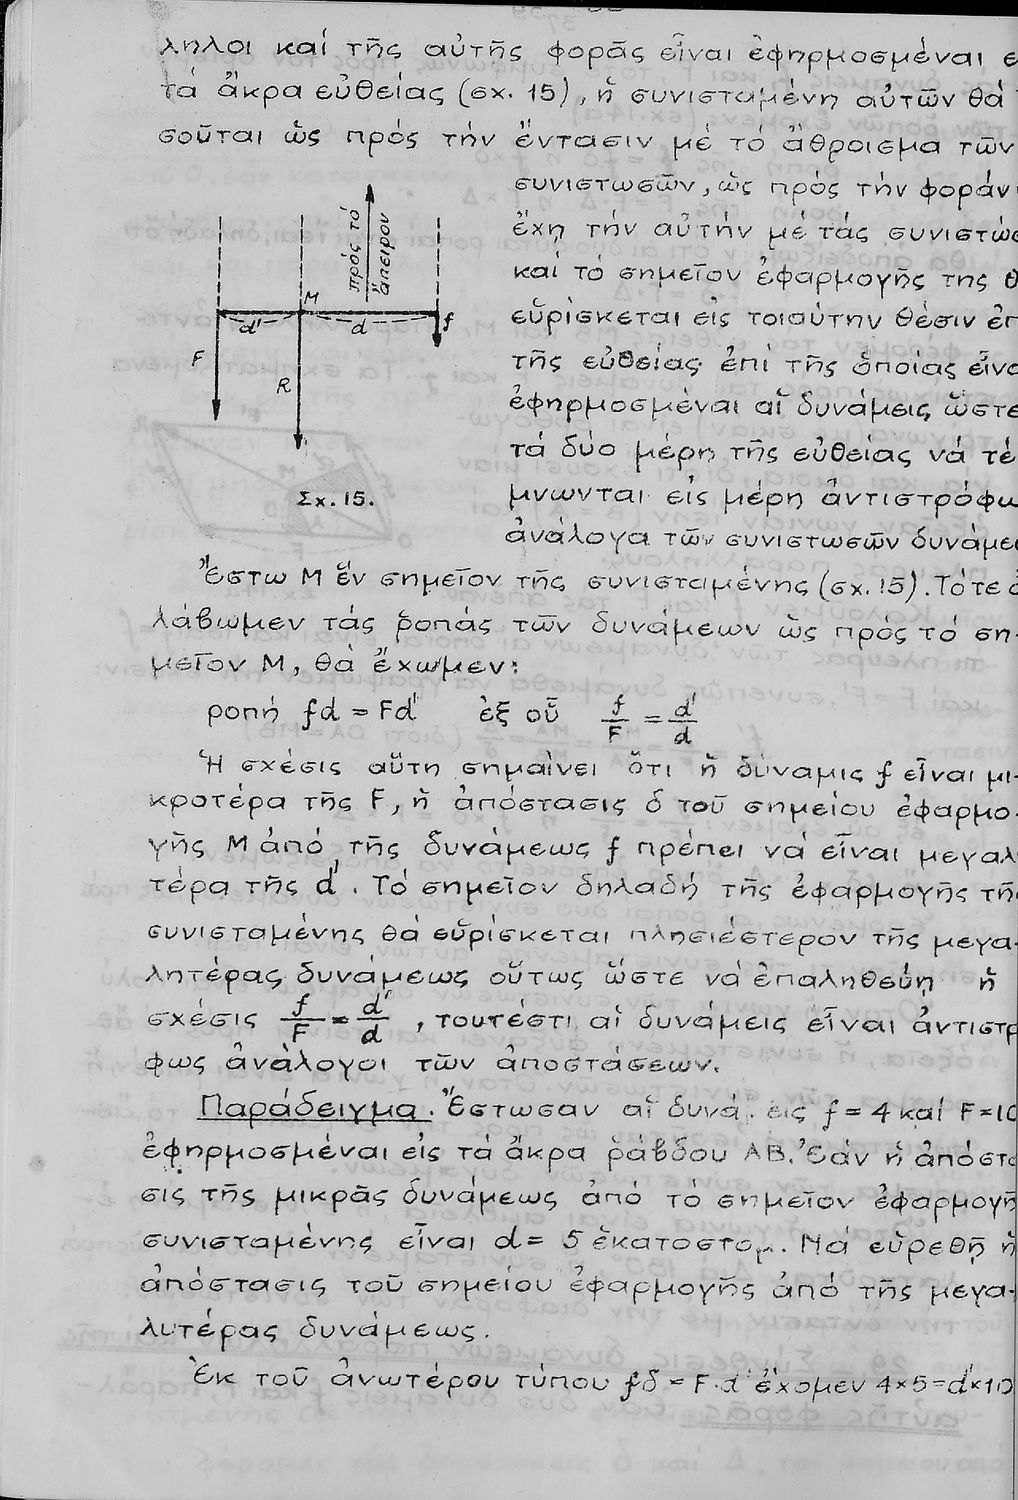 ληλοι καί τῆς αὐτῆς φορᾶς εἶναι ἐφηρμοσμέναι
τά ἄκρα εὐθείας (σχ. 15), ἡ συνισταμένη αὐτῶν θά
σοῦται ὡς πρός τήν ἔντασιν μέ τό ἄθροισμα τῶν
συνιστωσῶν, ὡς πρός τήν φοράν
ἔχη τήν αὐτήν μέ τάς
καί τό σημεῖον ἐφαρμογῆς της
εὑρίσκεται εἰς τοιαύτην θέσιν
τῆς εὐθείας ἐπί τῆς ὁποίας
ἐφηρμοσμέναι αἱ δυνάμεις ὥστε
τά δύο μέρη τῆς εὐθείας νά τέ-
μνωνται εἰς μέρη
ἀνάλογα τῶν συνιστωσῶν
πρός τό
ἄπειρον
M
d' d f
F
R
Σχ. 15.
Ἔστω Μ ἕν σημεῖον τῆς συνισταμένης (σχ. 15). Τότε
λάβωμεν τάς ῥοπάς τῶν δυνάμεων ὡς πρός τό ση-
μεῖον Μ, θά ἔχωμεν:
ροπή fd = Fd' ἐξ οὗ f/F = d'/d
Ἡ σχέσις αὕτη σημαίνει ὅτι ἡ δύναμις f εἶναι μι-
κροτέρα τῆς F, ἡ ἀπόστασις δ τοῦ σημείου ἐφαρμο-
γῆς Μ ἀπό τῆς δυνάμεως f πρέπει νά εἶναι
τέρα τῆς d'. Τό σημεῖον δηλαδή τῆς ἐφαρμογῆς
συνισταμένης θά εὑρίσκεται πλησιέστερον τῆς μεγα-
λητέρας δυνάμεως οὕτως ὥστε νά ἐπαληθεύη ἡ
σχέσις f/F = d'/d , τουτέστι αἱ δυνάμεις εἶναι
φως ἀνάλογοι τῶν ἀποστάσεων.
Παράδειγμα. Ἔστωσαν αἱ f = 4 καί F = 10
ἐφηρμοσμέναι εἰς τά ἄκρα ῥάβδου ΑΒ. Ἐάν ἡ
σις τῆς μικρᾶς δυνάμεως ἀπό τό σημεῖον
συνισταμένης εἶναι d = 5 ἑκατοστομ. Νά εὑρεθῇ ἡ
ἀπόστασις τοῦ σημείου ἐφαρμογῆς ἀπό τῆς μεγα-
λυτέρας δυνάμεως.
Ἐκ τοῦ ἀνωτέρου τύπου fδ = F·d' ἔχομεν 4×5=d'×10